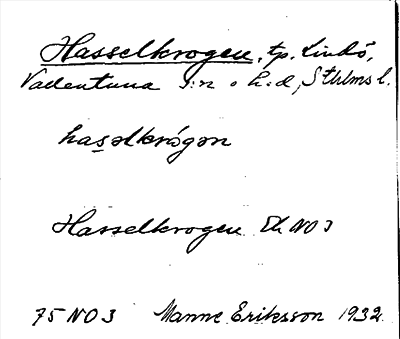 Hasselkrogen, tp. Lindö,
Vallentuna s:n o h:d, Sthlms l.
hasəlkrógən
Hasselkrogen Ek NO 3
75 NO 3 Manne Eriksson 1932